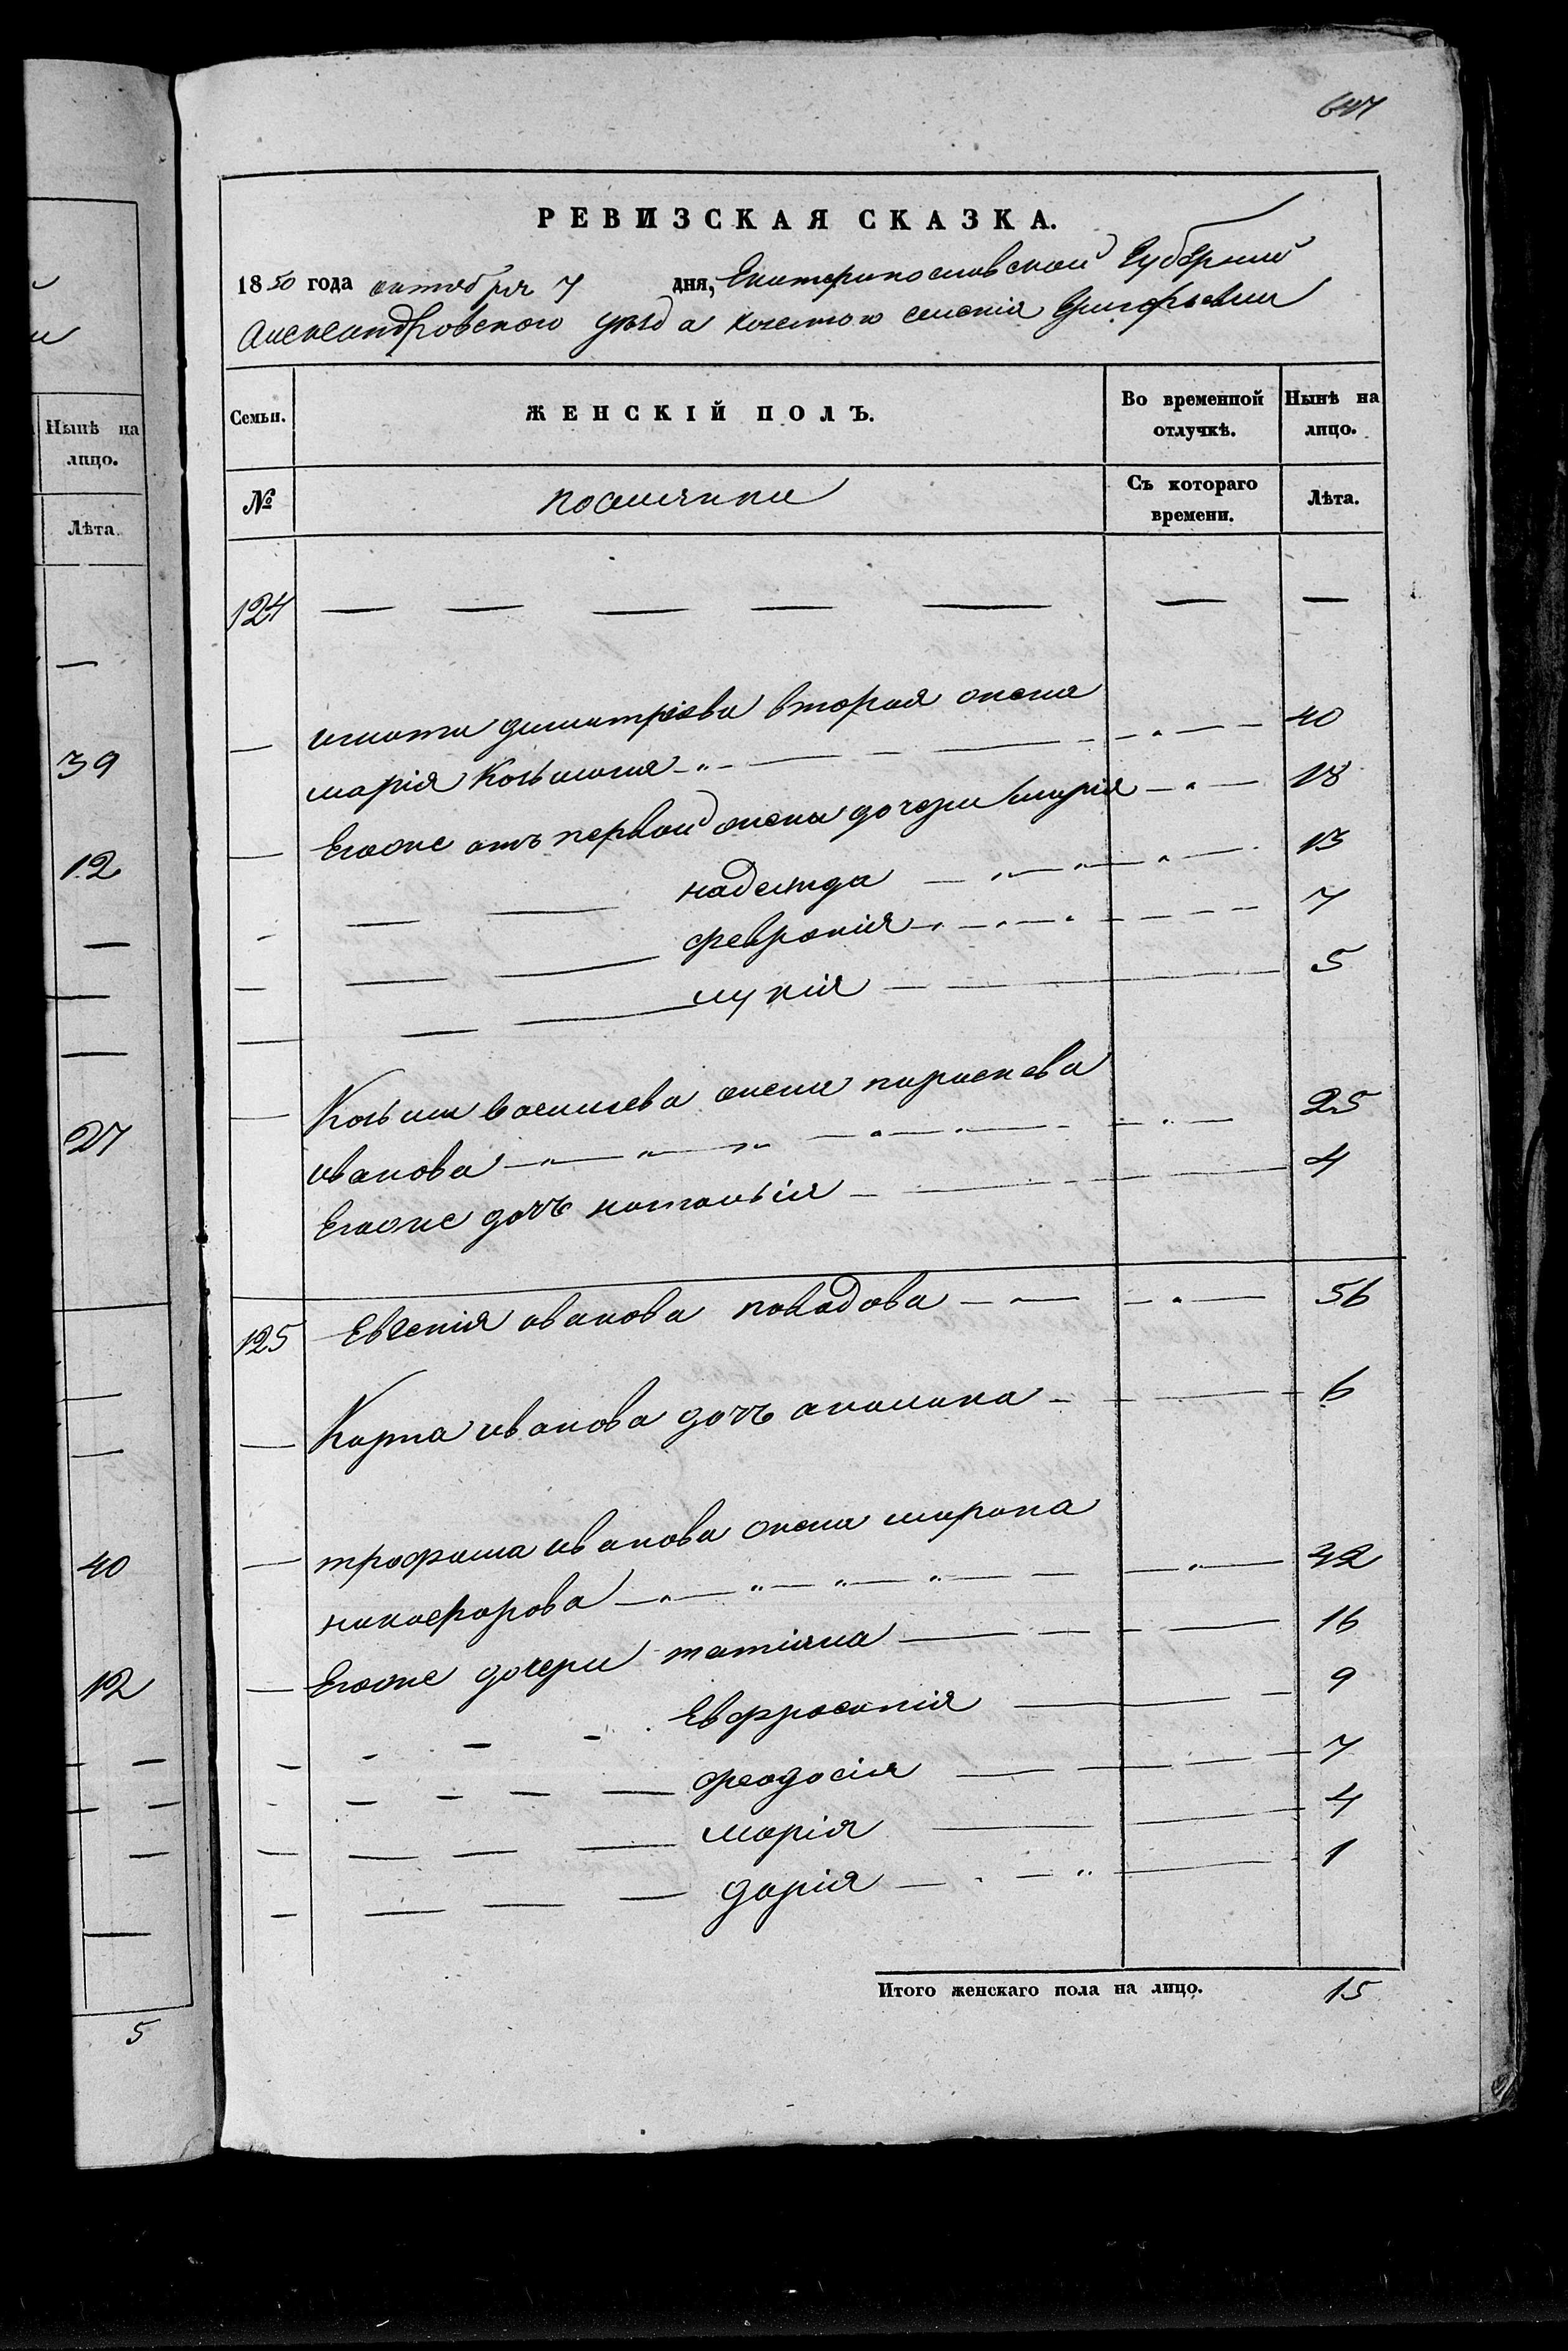 Нынѣ на
лицо.
Лѣта.
39
12
27
40
12
5
РЕВИЗСКАЯ СКАЗКА.
1850 года октября 7 дня, Екатеринославской Губернии
Александровского уезда казенного селения Григорьевки
Семьи. ЖЕНСКІЙ ПОЛЪ. Во временной отлучкѣ. Нынѣ на лицо.
№ поселянки Съ котораго времени. Лѣта.
124 — — — — — — —
— игната димитріева вторая жена
марія Козьмина 40
— Егоже отъ первой жены дочери марія 18
надежда 13
феврония 7
лукія 5
— Козьмы васильева жена параскева
иванова 25
Егоже дочь наталья 4
125 Евгенія иванова 56
— Карпа иванова дочь акилина 6
— трофима иванова жена
никифорова 32
— Егоже дочери татіяна 16
Евфросинія 9
феодосія 7
марія 4
дарія 1
Итого женскаго пола на лицо. 15